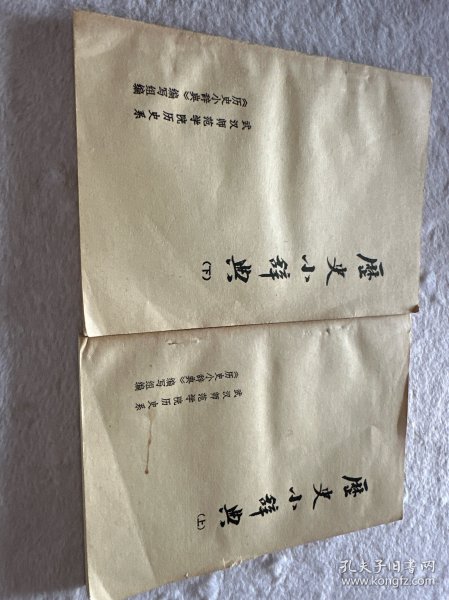 歷史小辭典
(下)
武汉师范学院历史系
《历史小辞典》编写组编
歷史小辭典
(上)
武汉师范学院历史系
《历史小辞典》编写组编
孔夫子旧书网
www.kongfz.com